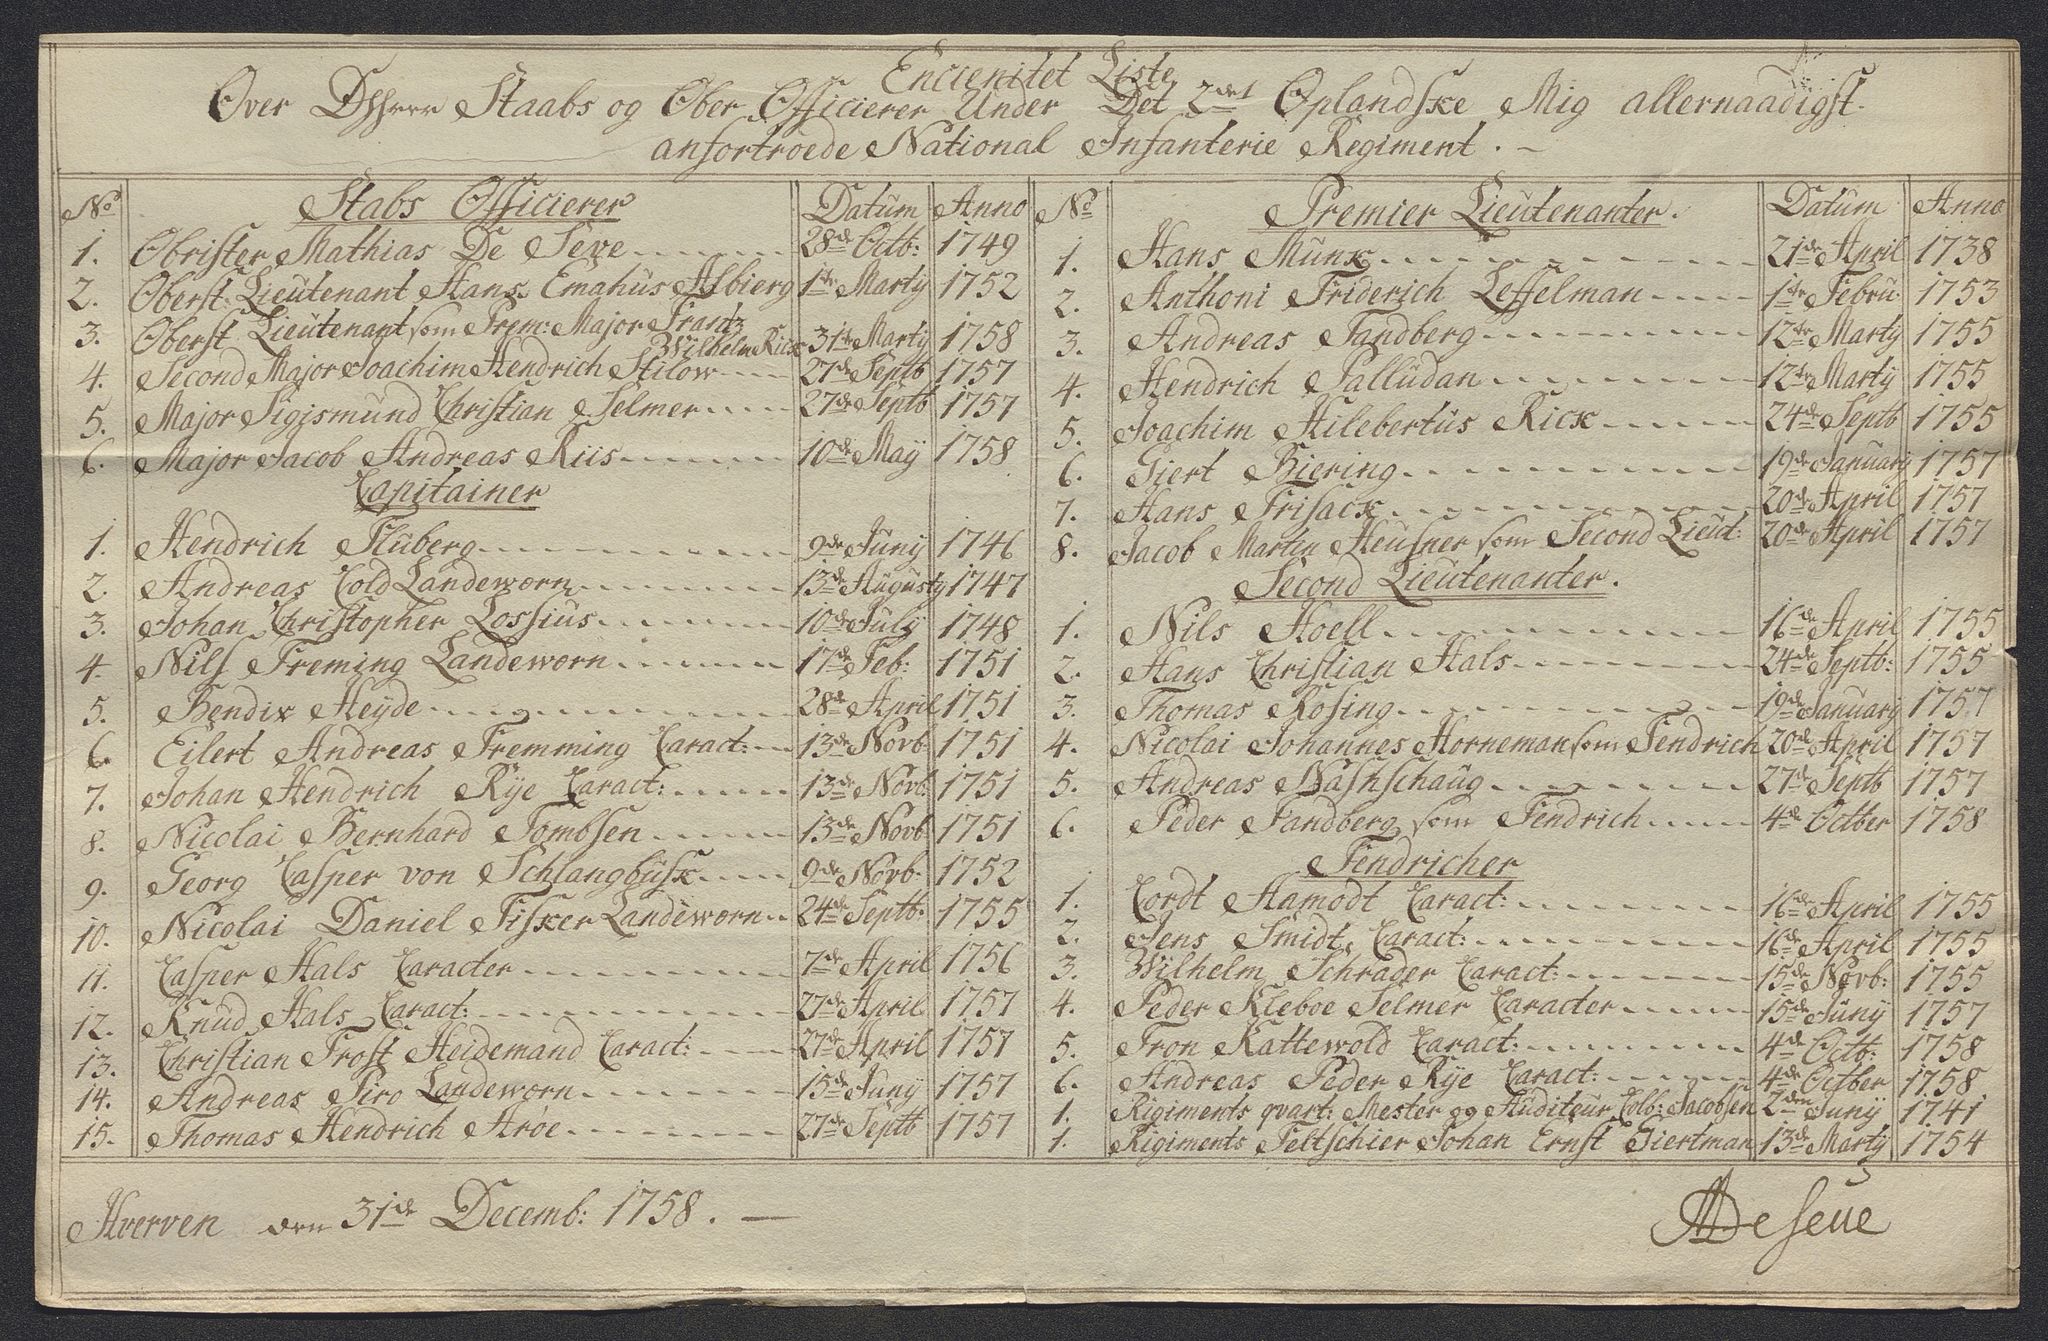 Encienitet Liste
Over Dhhrrr Staabs og Ober Officierer Under Det 2det Oplandske Mig allernaadigst
anfortroede National Infanterie Regiment. -
No Stabs Officierer Datum Anno
1. Obrister Mathias De Seve 28de Octb: 1749
2. Oberst: Lieutenant Hans Emahus Asbierg 1te Marty 1752
3. Oberst Lieutenant som Prem: Major Frantz
Wilhelm Rick 31te Marty 1758
4. Second Major Joachim Hendrich Stilow 27de Septb 1757
5. Major Sigismund Christian Selmer 27de Septb 1757
6. Major Jacob Andreas Riis 10de Maÿ 1758
Capitainer
1. Hendrich Stuberg 9de Juny 1746
2. Andreas Cold Landeworn 13de Augusty 1747
3. Johan Christopher Lossius 10de July 1748
4. Nils Freming Landeworn 17de Feb: 1751
5. Bendix Heyde 28de April 1751
6. Eilert Andreas Fremming Caract: 13de Novb: 1751
7. Johan Hendrich Rÿe Caract: 13de Novb: 1751
8. Nicolai Bernhard Tombsen 13de Novb 1751
9. Georg Casper von Schlangbusk 9de Novb: 1752
10. Nicolai Daniel Fisker Landeworn 24de Septb: 1755
11. Casper Hals Caracter 7de April 1756
12. Knud Hals Caract: 27de April 1757
13. Christian Frost Heidemand Caract: 27de April 1757
14. Andreas Piro Landeworn 15de Juny 1757
15. Thomas Hendrich Arøe 27de Septb 1757
No Premier Lieutenanter. Datum Anno
1. Hans Munk 21de April 1738
2. Anthoni Friderich Leffelman 1te Febru: 1753
3. Andreas Sandberg 12te Marty 1755
4. Hendrich Palludan 12te Marty 1755
5. Joachim Hilebertus Rick 24de Septb 1755
6. Giert Biering 19de January 1757
7. Hans Frisack 20de April 1757
8. Jacob Martin Heusner som Second Lieut: 20de April 1757
Second Lieutenanter.
1. Nils Hoell 16de April 1755
2. Hans Christian Hals 24de Septb: 1755
3. Thomas Rosing 19de January 1757
4. Nicolai Johannes Horneman som Fendrich 20de April 1757
5. Andreas Nashschaug 27de Septb 1757
6. Peder Sandberg som Fendrich 4de Octber 1758
Fendricher
1. Cordt Aamodt Caract: 16de April 1755
2. Jens Smidt Caract: 16de April 1755
3. Wilhelm Schrader Caract: 15de Novb: 1755
4. Peder Kleboe Selmer Caracter 15de Juny 1757
5. Tron Kattewold Caract: 4de Octb: 1758
6. Andreas Peder Rÿe Caract: 4de Octber 1758
1. Rigiments qvart: Mester og Auditeur Colb: Jacobsen 2den Juny 1741
1. Rigiments Feltschier Johan Ernst Giertman 13de Marty 1754
Hverven den 31de Decemb: 1758. -
MDeseue